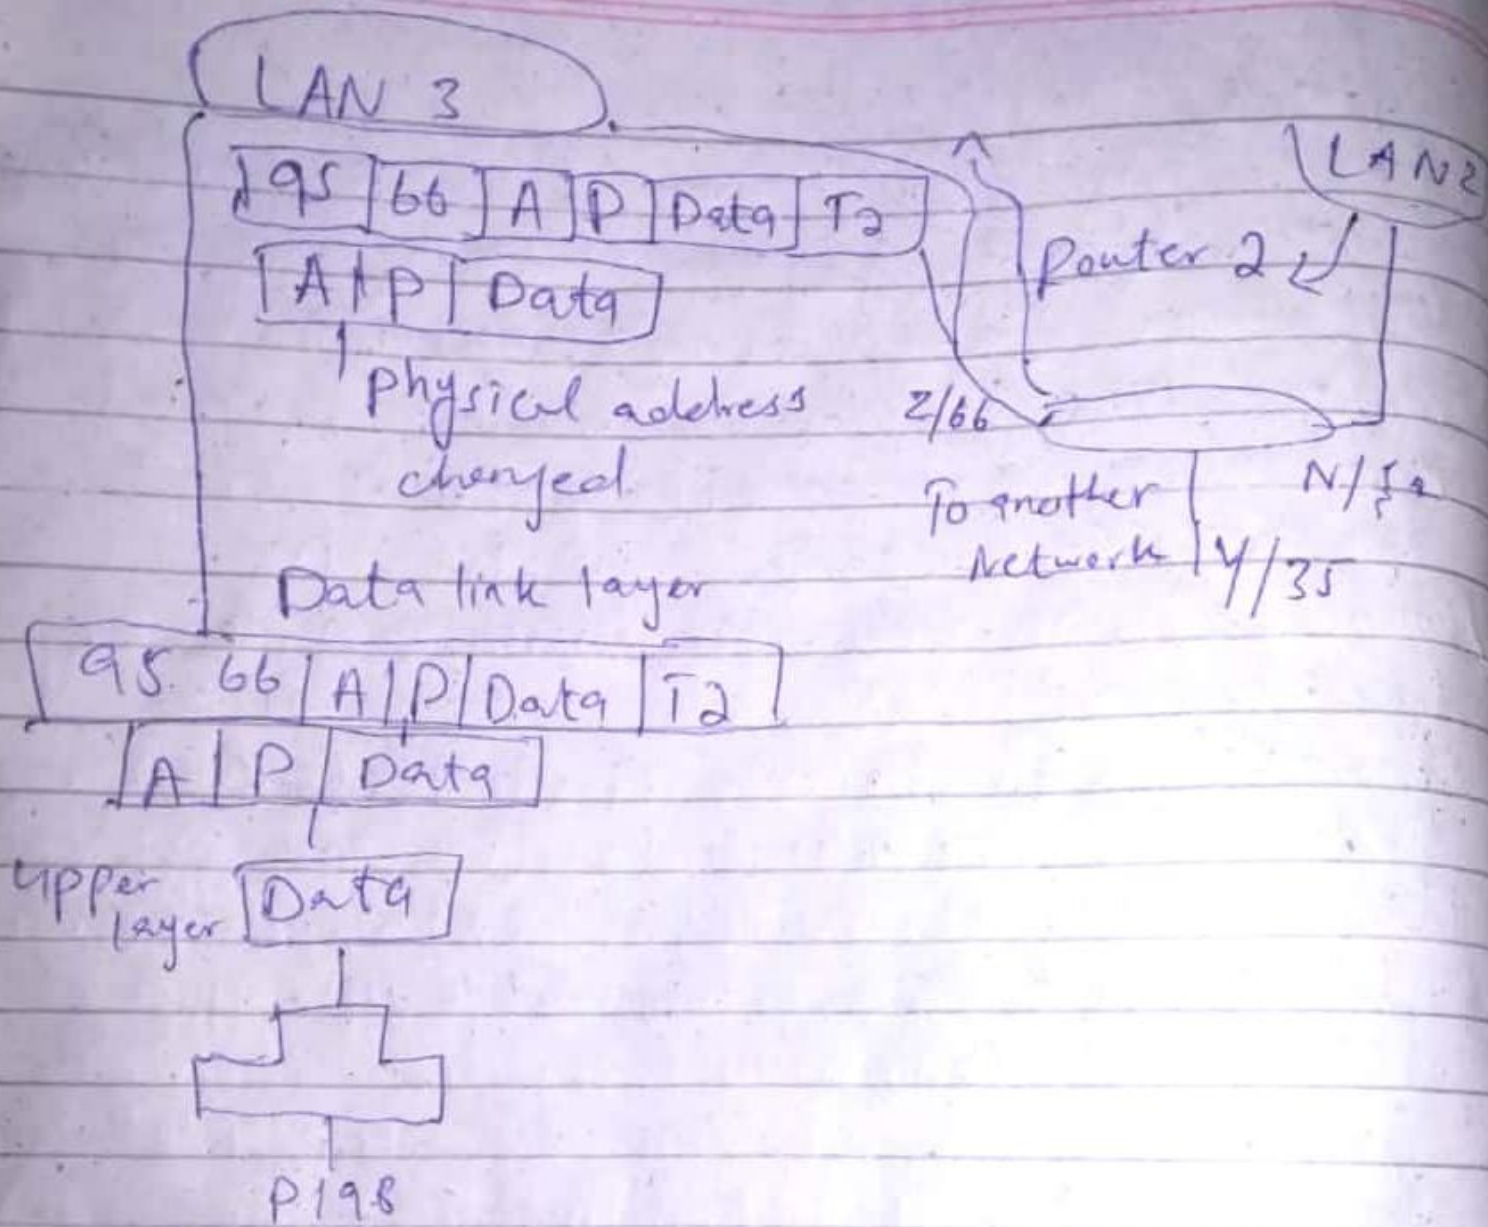 LAN 3
LAN 2
95 66 A P Data T2
Router 2
A P Data
Physical address
changed
Z/66
To another
Network
Y/35
Data link layer
95 66 A P Data T2
A P Data
upper
layer
Data